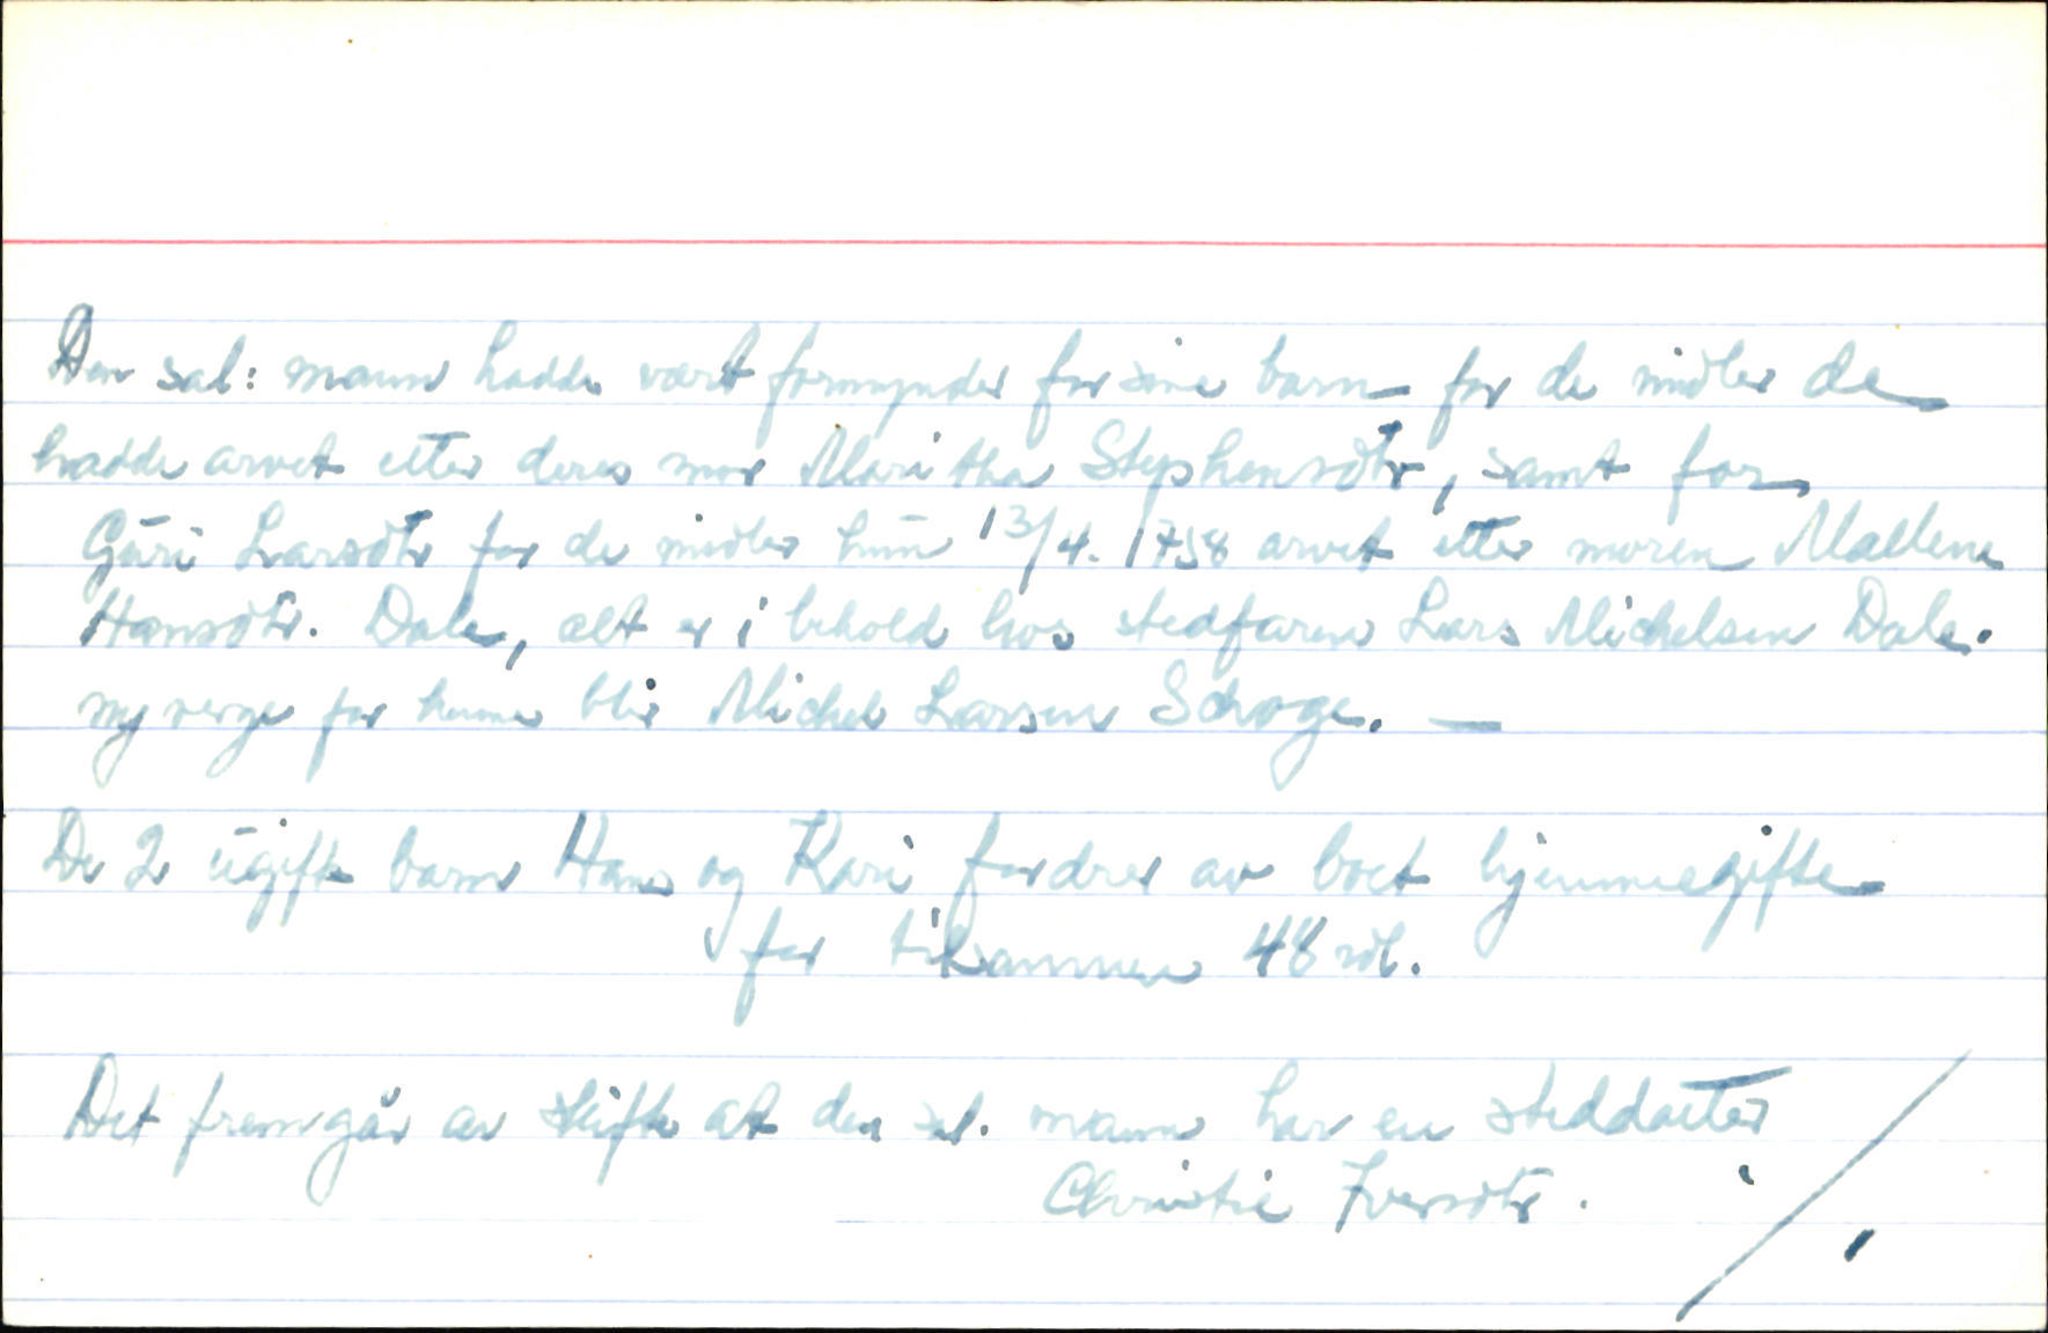 Den sal: mann hadde vært formynder for sine barn for de midler de
hadde arvet etter deres mor Maritha Stephensdtr, samt for
Guri Larsdtr for de midler hun 13/4. 1758 arvet etter moren Mallene
Hansdtr. Dale, alt er i behold hos stedfaren Lars Michelsen Dale.
ny verge for henne blir Michel Larsen Schoge. —
De 2 ugifte barn Hans og Kari fordrer av boet hjemmegifte
for tilsammen 48 rdl.
Det fremgår av skifte at den sal. mann har en steddatter
Christie Iversdtr.